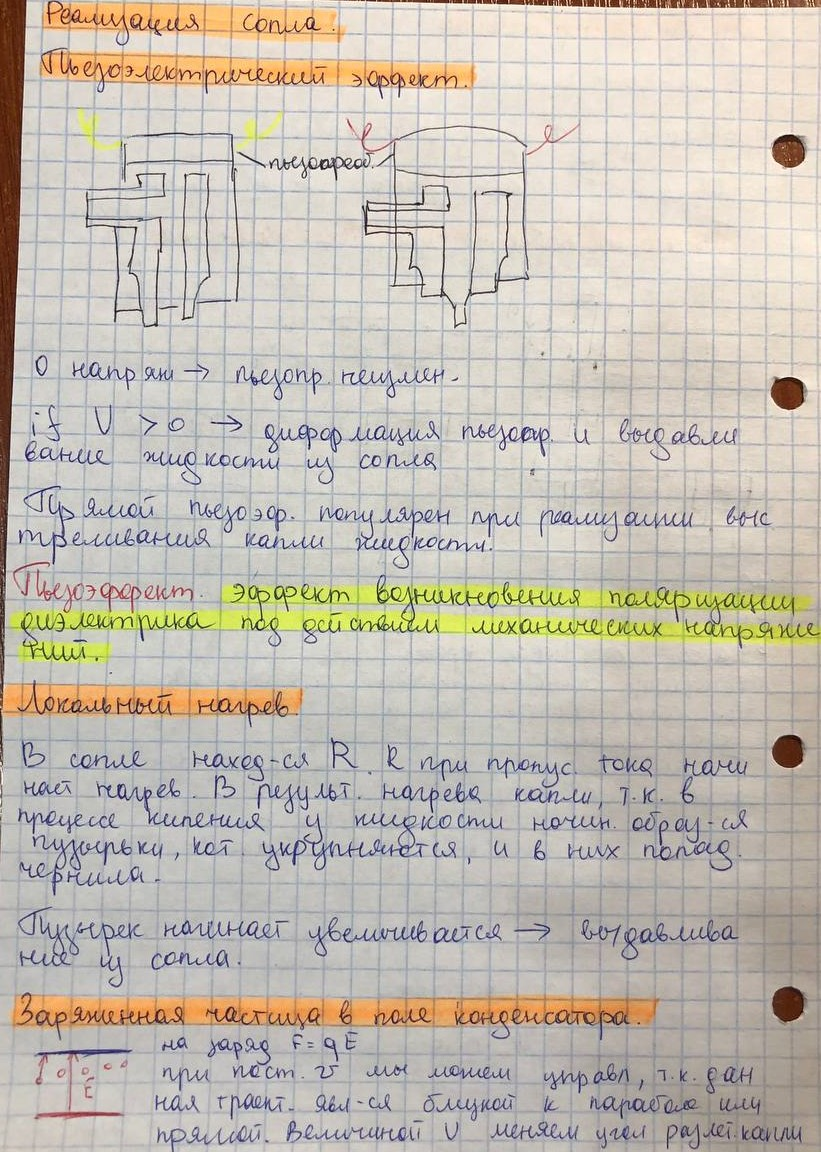 Реализация сопла.
Пьезоэлектрический эффект.
пьезопреоб.
0 напряж → пьезопр. неизмен.
if U > 0 → диформация пьезопр. и выдавли
вание жидкости из сопла
Прямой пьезоэф. популярен при реализации выс
треливания капли жидкости.
Пьезоэффект. эффект возникновения поляризации
диэлектрика под действием механических напряже
ний.
Локальный нагрев.
В сопле наход-ся R. R при пропус. тока начи
нает нагрев. В результ. нагрева капли, т.к. в
процессе кипения у жидкости начин. образ-ся
пузырьки, кот. укрупняются, и в них попад.
чернила.
Пузырек начинает увеличивается → выдавлива
ние из сопла.
Заряженная частица в поле конденсатора.
на заряд F = qE
E
при пост. v мы можем управл, т.к. дан
ная траект. явл-ся близкой к параболе или
прямой. Величиной U меняем угол разлет. капли